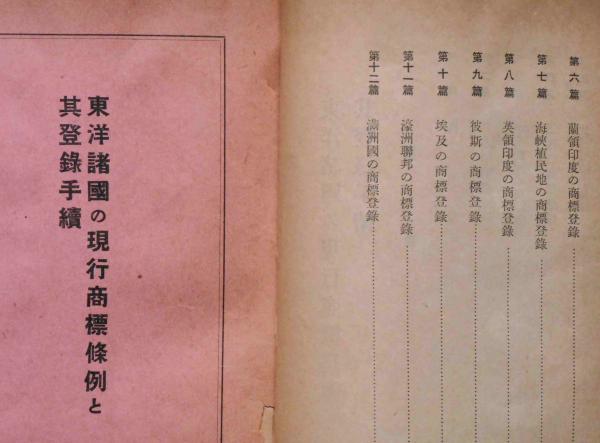 第六篇 蘭領印度の商標登錄
第七篇 海峽植民地の商標登錄
第八篇 英領印度の商標登錄
第九篇 彼斯の商標登錄
第十篇 埃及の商標登錄
第十一篇 濠洲聯邦の商標登錄
第十二篇 滿洲國の商標登錄
東洋諸國の現行商標條例と
其登錄手續